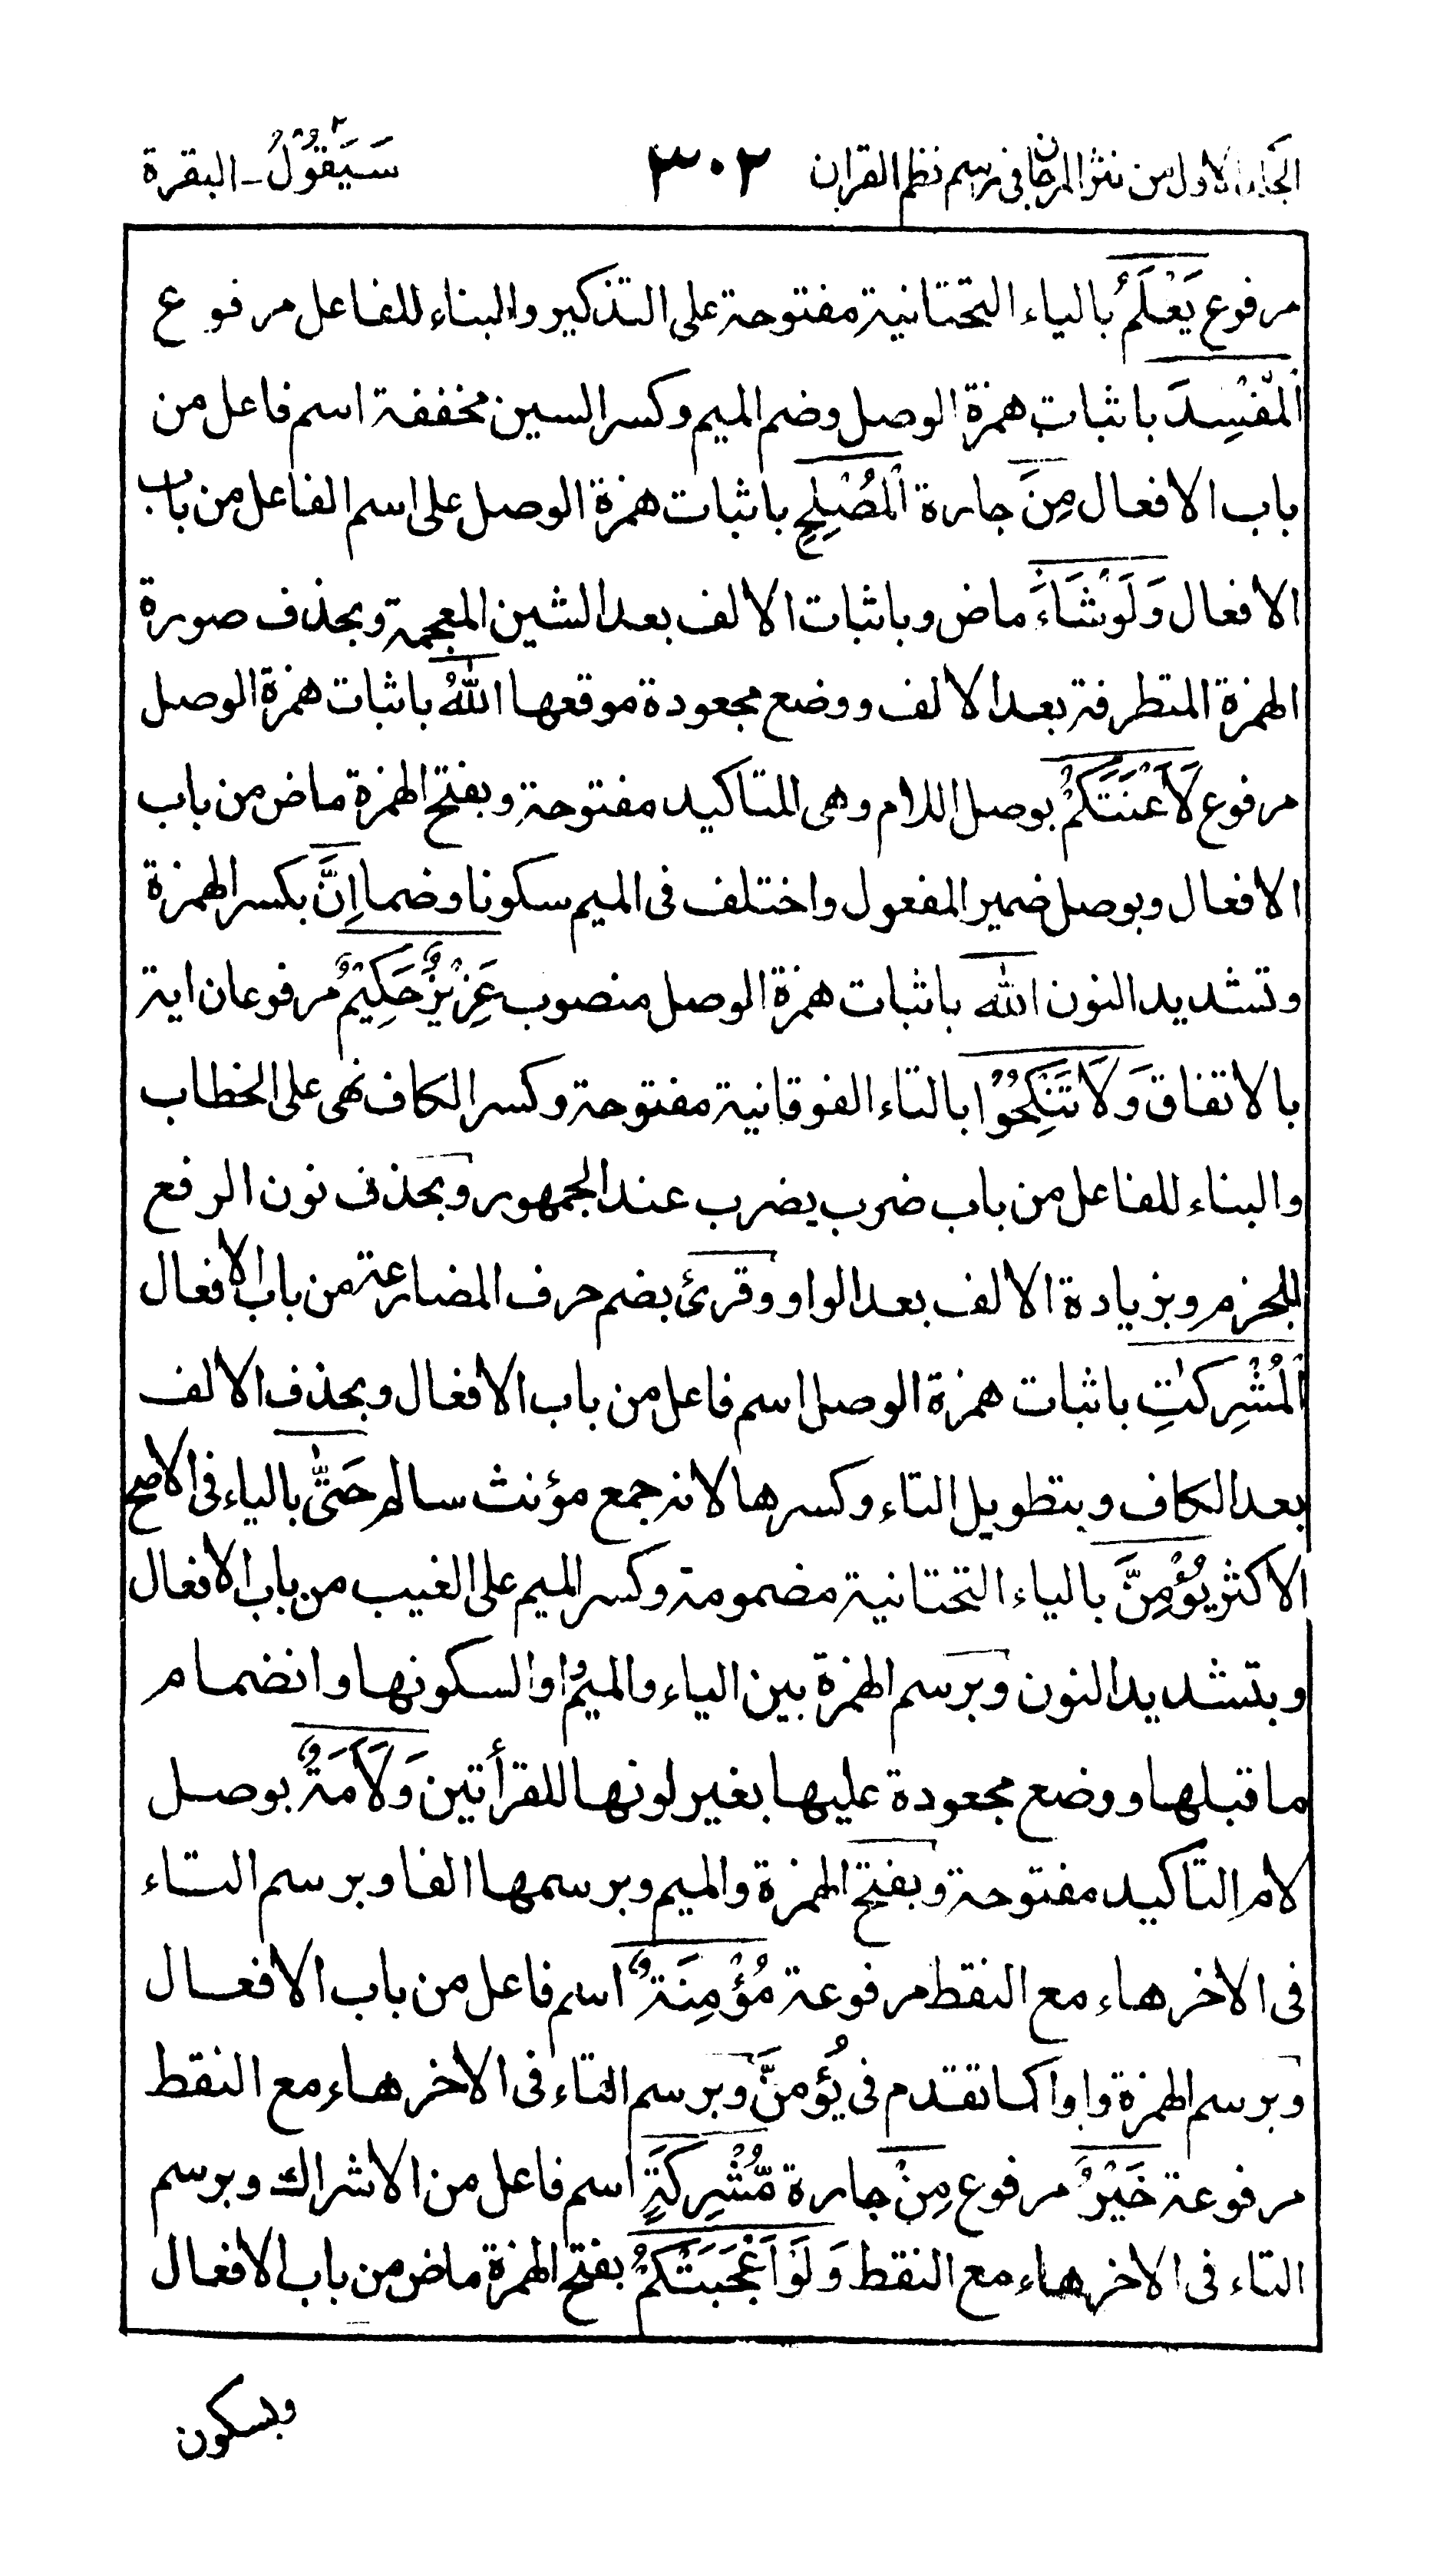 الجلد الاول من نثر المرجان في رسم نظم القران ٣٠٢ سَيَقُوْلُ ٢ - البقرة
مرفوع يَعْلَمُ بالياء التحتانية مفتوحة على التذكير والبناء للفاعل مرفوع
اَلْمُفْسِدَ باثبات همزة الوصل وضم الميم وكسر السين مخففة اسم فاعل من
باب الافعال مِنَ جارة اَلْمُصْلِحِ باثبات همزة الوصل على اسم الفاعل من باب
الافعال وَلَوْشَاءَ ماض وباثبات الالف بعد الشين المعجمة وبحذف صورة
الهمزة المتطرفة بعد الالف ووضع مجعودة موقعها اللّٰهُ باثبات همزة الوصل
مرفوع لَاَعْنَتَكُمْ بوصل اللام وهى للتاكيد مفتوحة وبفتح الهمزة ماض من باب
الافعال وبوصل ضمير المفعول واختلف فى الميم سكونا وضما اِنَّ بكسر الهمزة
وتشديد النون اللّٰه باثبات همزة الوصل منصوب عَزِيْزٌ حَكِيْمٌ مرفوعان اية
بالاتفاق وَلَا تَنْكِحُوْا بالتاء الفوقانية مفتوحة وكسر الكاف نهى على الخطاب
والبناء للفاعل من باب ضرب يضرب عند الجمهور وبحذف نون الرفع
للجزم وبزيادة الالف بعد الواو وقرئ بضم حرف المضارعة من باب الافعال
اَلْمُشْرِكٰتِ باثبات همزة الوصل اسم فاعل من باب الافعال وبحذف الالف
بعد الكاف وبتطويل التاء وكسرها لانه جمع مؤنث سالم حَتّٰى بالياء فى الاصح
الاكثر يُؤْمِنَّ بالياء التحتانية مضمومة وكسر الميم على الغيب من باب الافعال
وبتشديد النون وبرسم الهمزة بين الياء والميم واوا لسكونها وانضمام
ما قبلها ووضع مجعودة عليها بغير لونها للقرأتين وَلَاَمَةٌ بوصل
لام التاكيد مفتوحة وبفتح الهمزة والميم وبرسمها الفا وبرسم التاء
فى الاخر هاء مع النقط مرفوعة مُؤْمِنَةٌ اسم فاعل من باب الافعال
وبرسم الهمزة واوا كما تقدم فى يُؤمنَّ وبرسم التاء فى الاخر هاء مع النقط
مرفوعة خَيْرٌ مرفوع مِنْ جارة مُّشْرِكَةٍ اسم فاعل من الاشراك وبرسم
التاء فى الاخر هاء مع النقط وَلَوْ اَعْجَبَتْكُمْ بفتح الهمزة ماض من باب الافعال
وبسكون